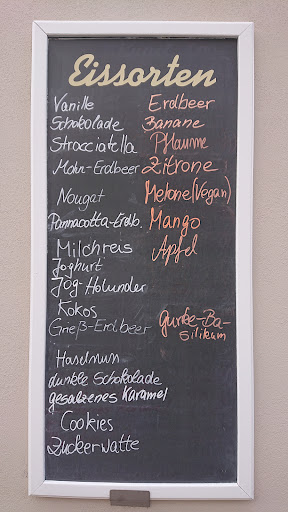 Eissorten
Vanille
Schokolade
Stracciatella
Mohn-Erdbeer
Nougat
Pannacotta-Erdb.
Milchreis
Joghurt
Jog-Holunder
Kokos
Grieß-Erdbeer
Haselnuss
dunkle Schokolade
gesalzenes Karamel
Cookies
Zuckerwatte
Erdbeer
Banane
Pflaume
Zitrone
Melone(Vegan)
Mango
Apfel
Gurke-Ba-
silikum